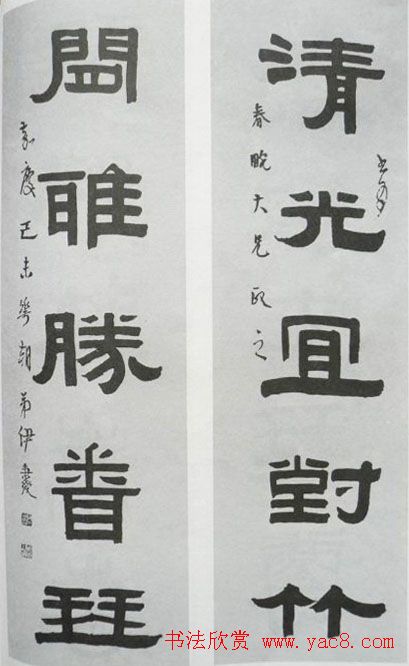 清光宜對竹
春畹大兄政之
閒雅勝聞琴
嘉慶己未華朝弟伊秉綬
书法欣赏 www.yac8.com